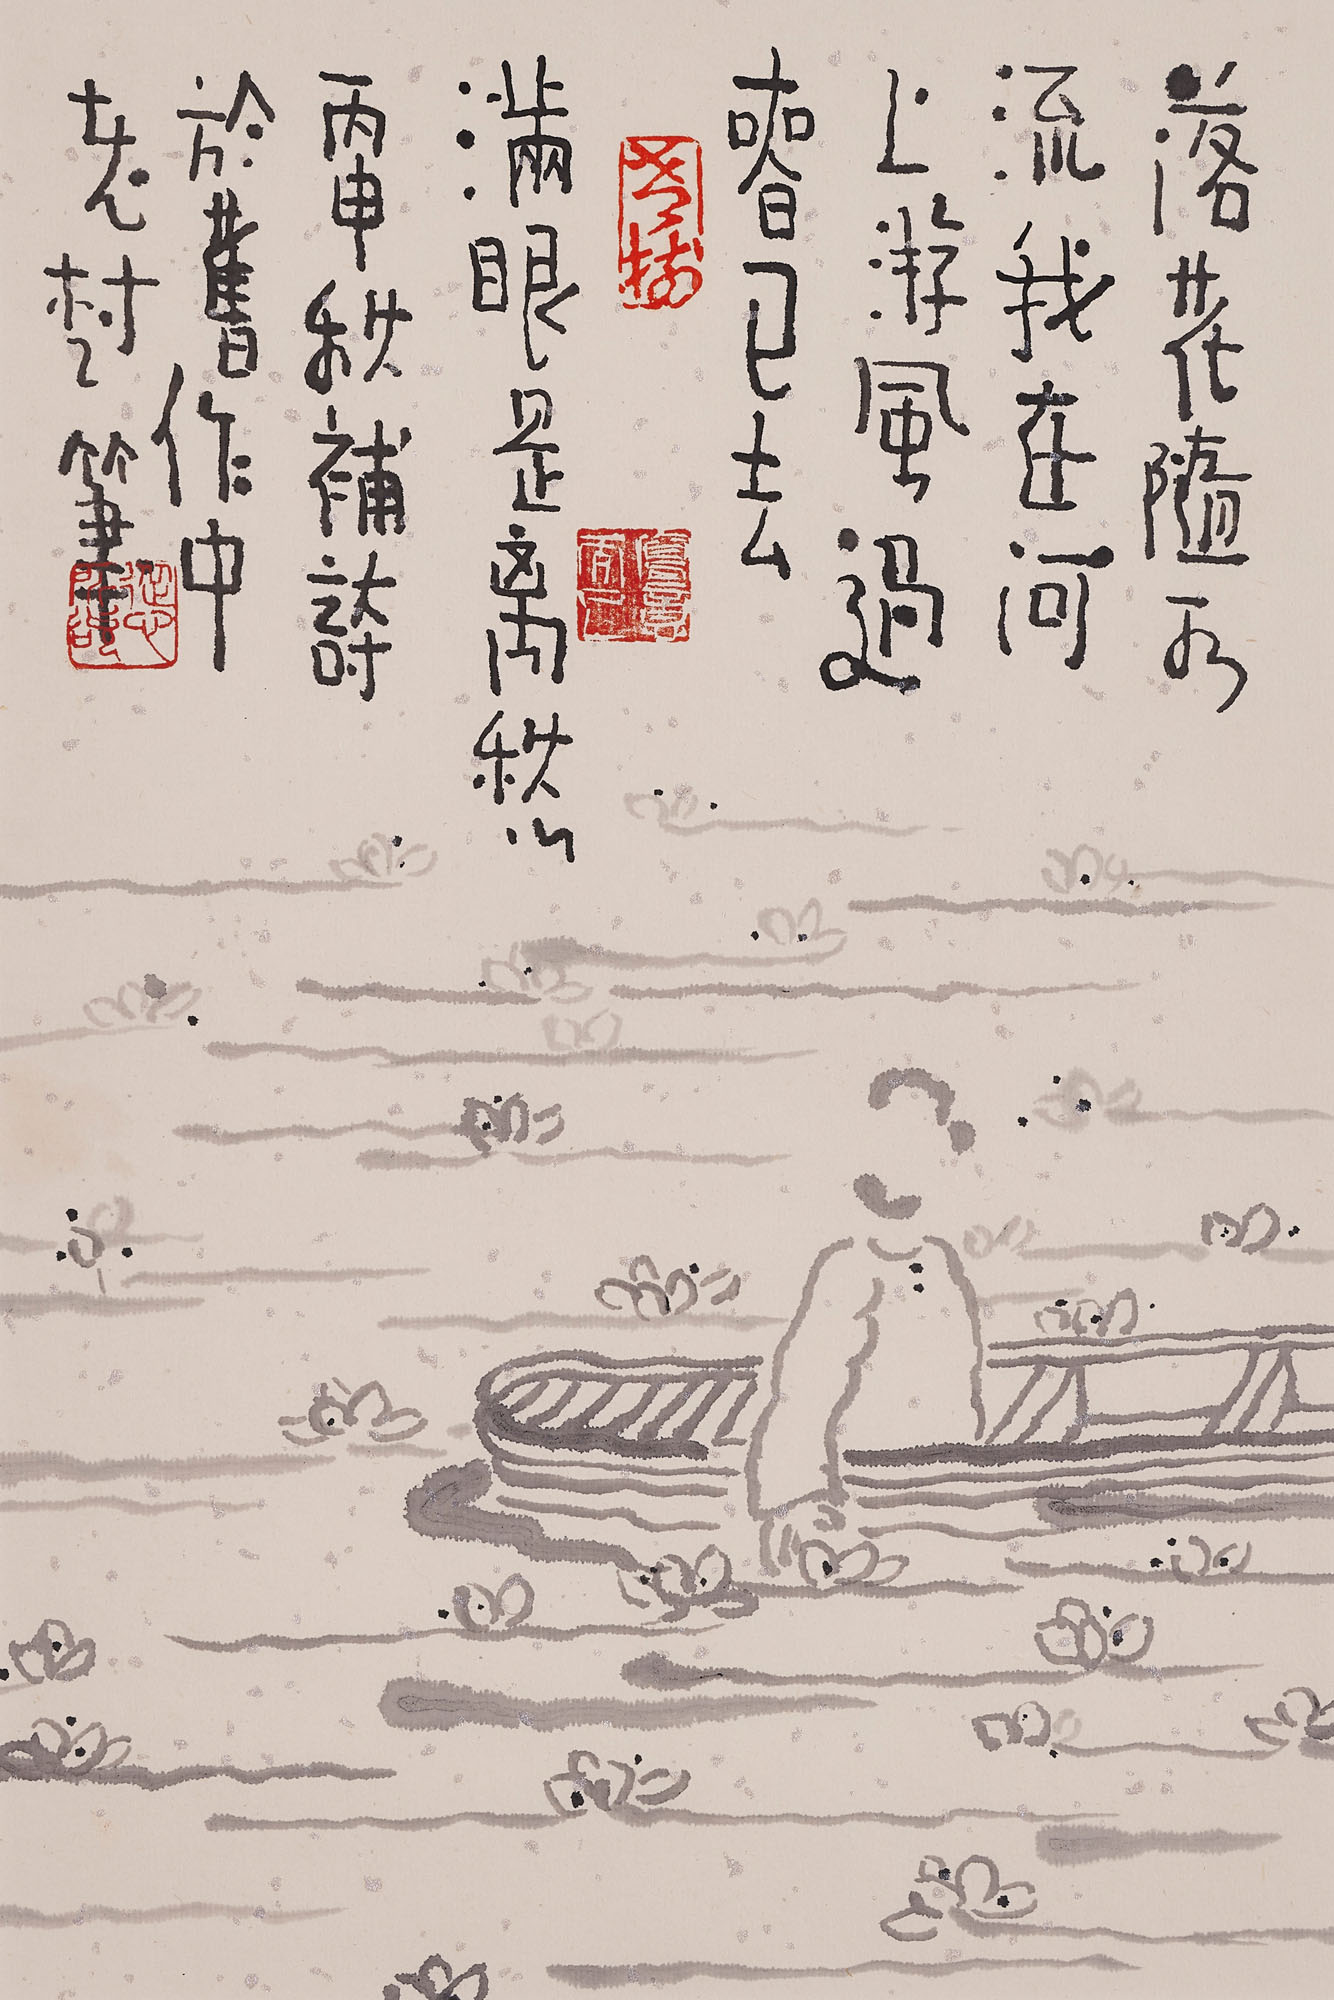 落花隨水
流我在河
上游風過
春已去
老樹
滿眼是離愁
丙申秋補詩
於舊作中
老树筆